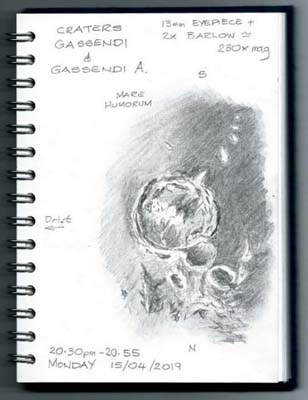 CRATERS
GASSENDI
&
GASSENDI A.
13mm EYEPIECE +
2x BARLOW ≃
230x mag
S
MARE
HUMORUM
Drift
N
20.30pm - 20.55
MONDAY 15/04/2019